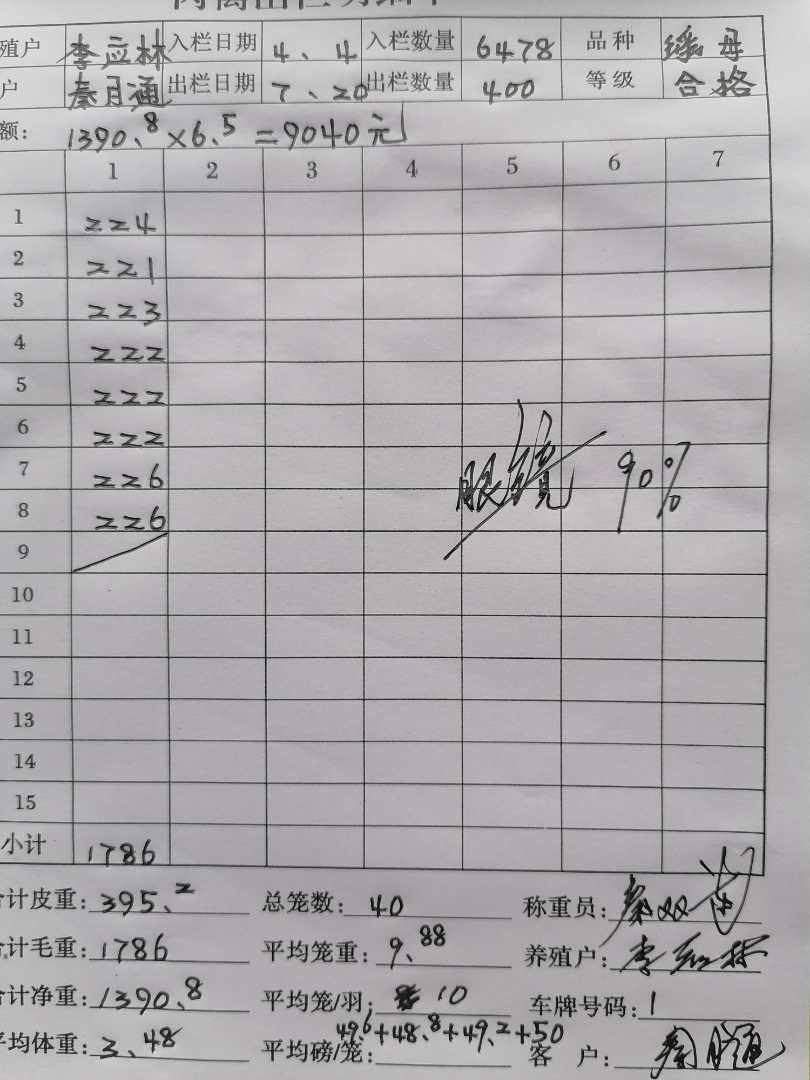 殖户 李应林 入栏日期 4、4 入栏数量 6478 品种 瑶母
户 秦月通 出栏日期 7、20 出栏数量 400 等级 合格
额: 1390.8×6.5=9040元
1 2 3 4 5 6 7
1 224
2 221
3 223
4 222
5 222
6 222
7 226 眼镜 90%
8 226
9
10
11
12
13
14
15
小计 1786
计皮重: 395.2 总笼数: 40 称重员:
计毛重: 1786 平均笼重: 9.88 养殖户: 李应林
计净重: 1390.8 平均笼/羽: 10 车牌号码: 1
平均体重: 3.48 平均磅/笼: 49.6+48.8+49.2+50 客 户: 秦月通